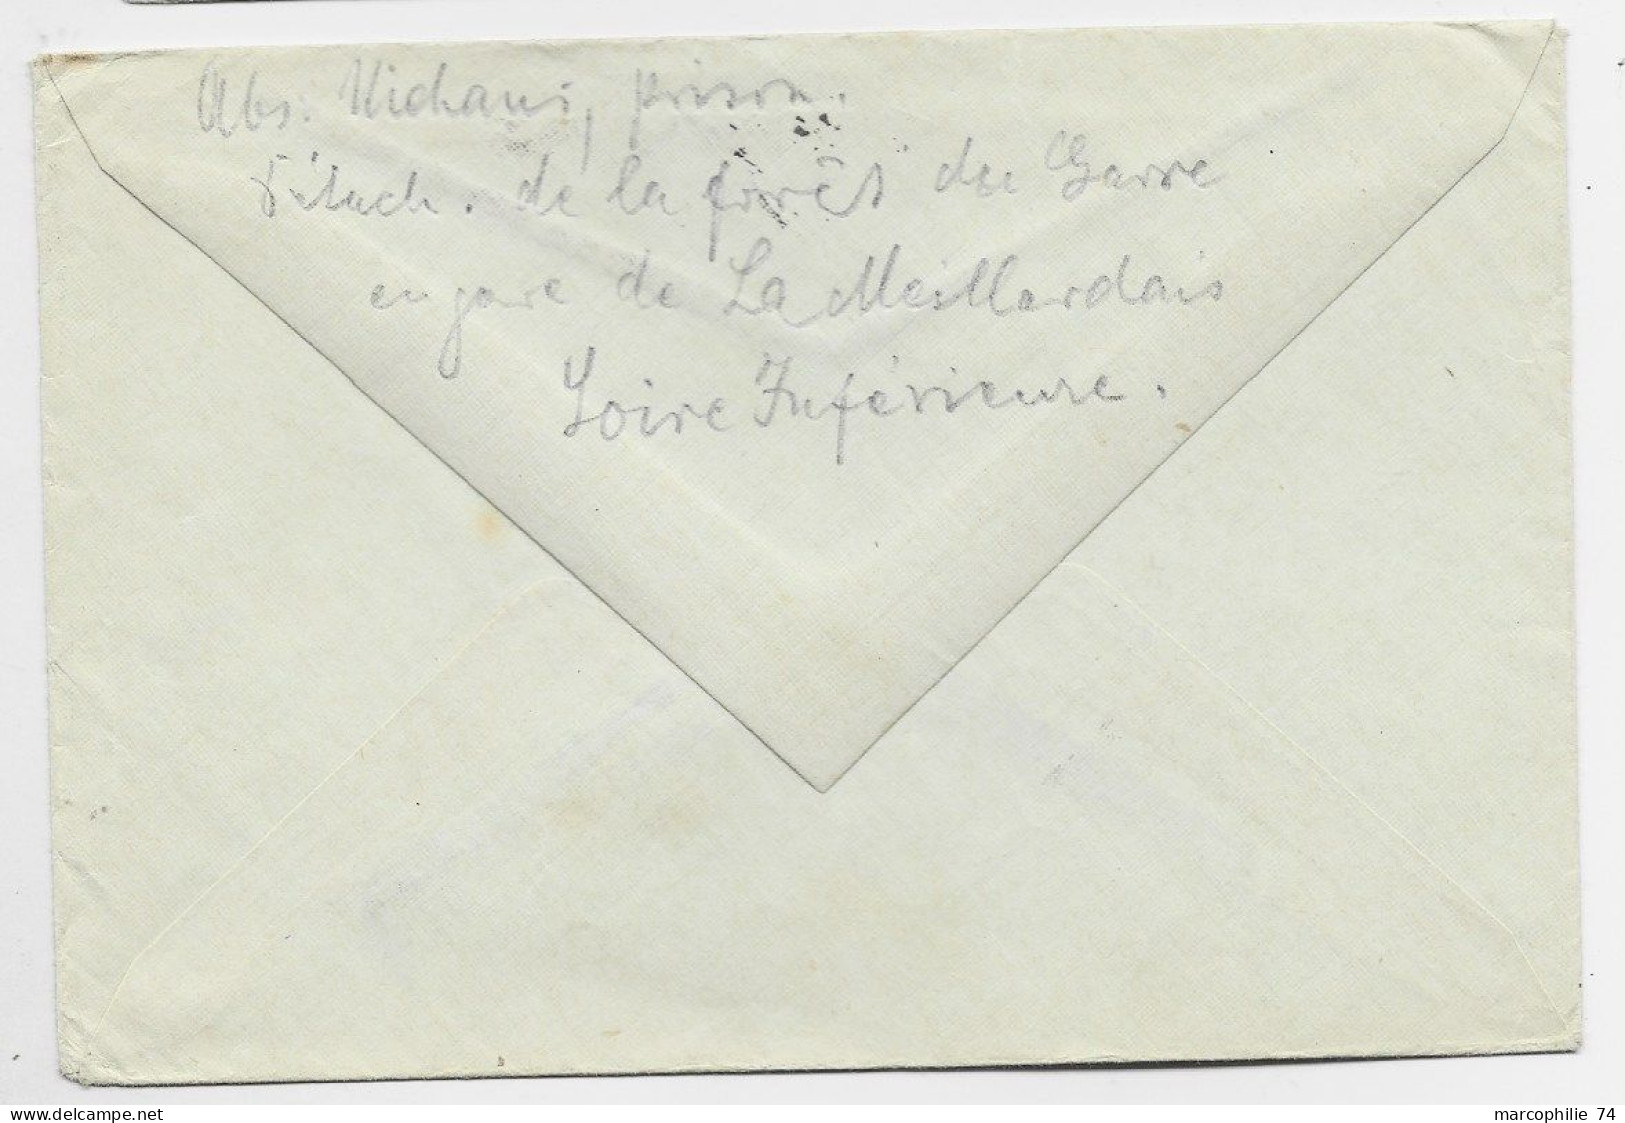 Abs: Michaus, prison.
Détach. de la forêt du Gavre
en gare de La Meillardais
Loire Inférieure.
www.delcampe.net
marcophilie 74